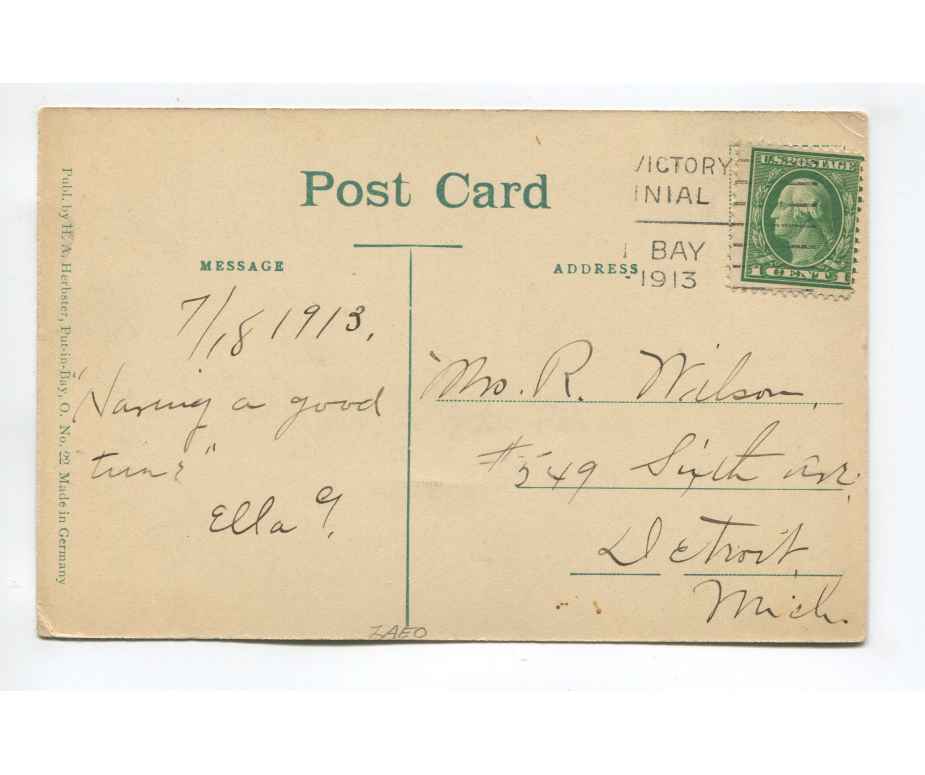 Post Card
VICTORY
NIAL
BAY
1913
U.S. POSTAGE
1 CENT 1
MESSAGE
ADDRESS
7/18 1913.
"Having a good
time"
Ella G.
Mrs. R. Wilson,
#549 Sixth Ave.
Detroit,
Mich.
ZAEO
Publ. by H. A. Herbster, Put-in-Bay, O. No. 22 Made in Germany